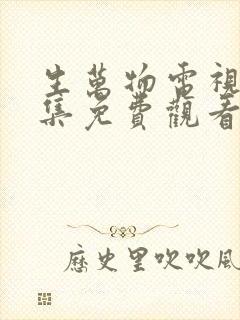 生萬物電視
集免費觀看
歷史里吹吹風